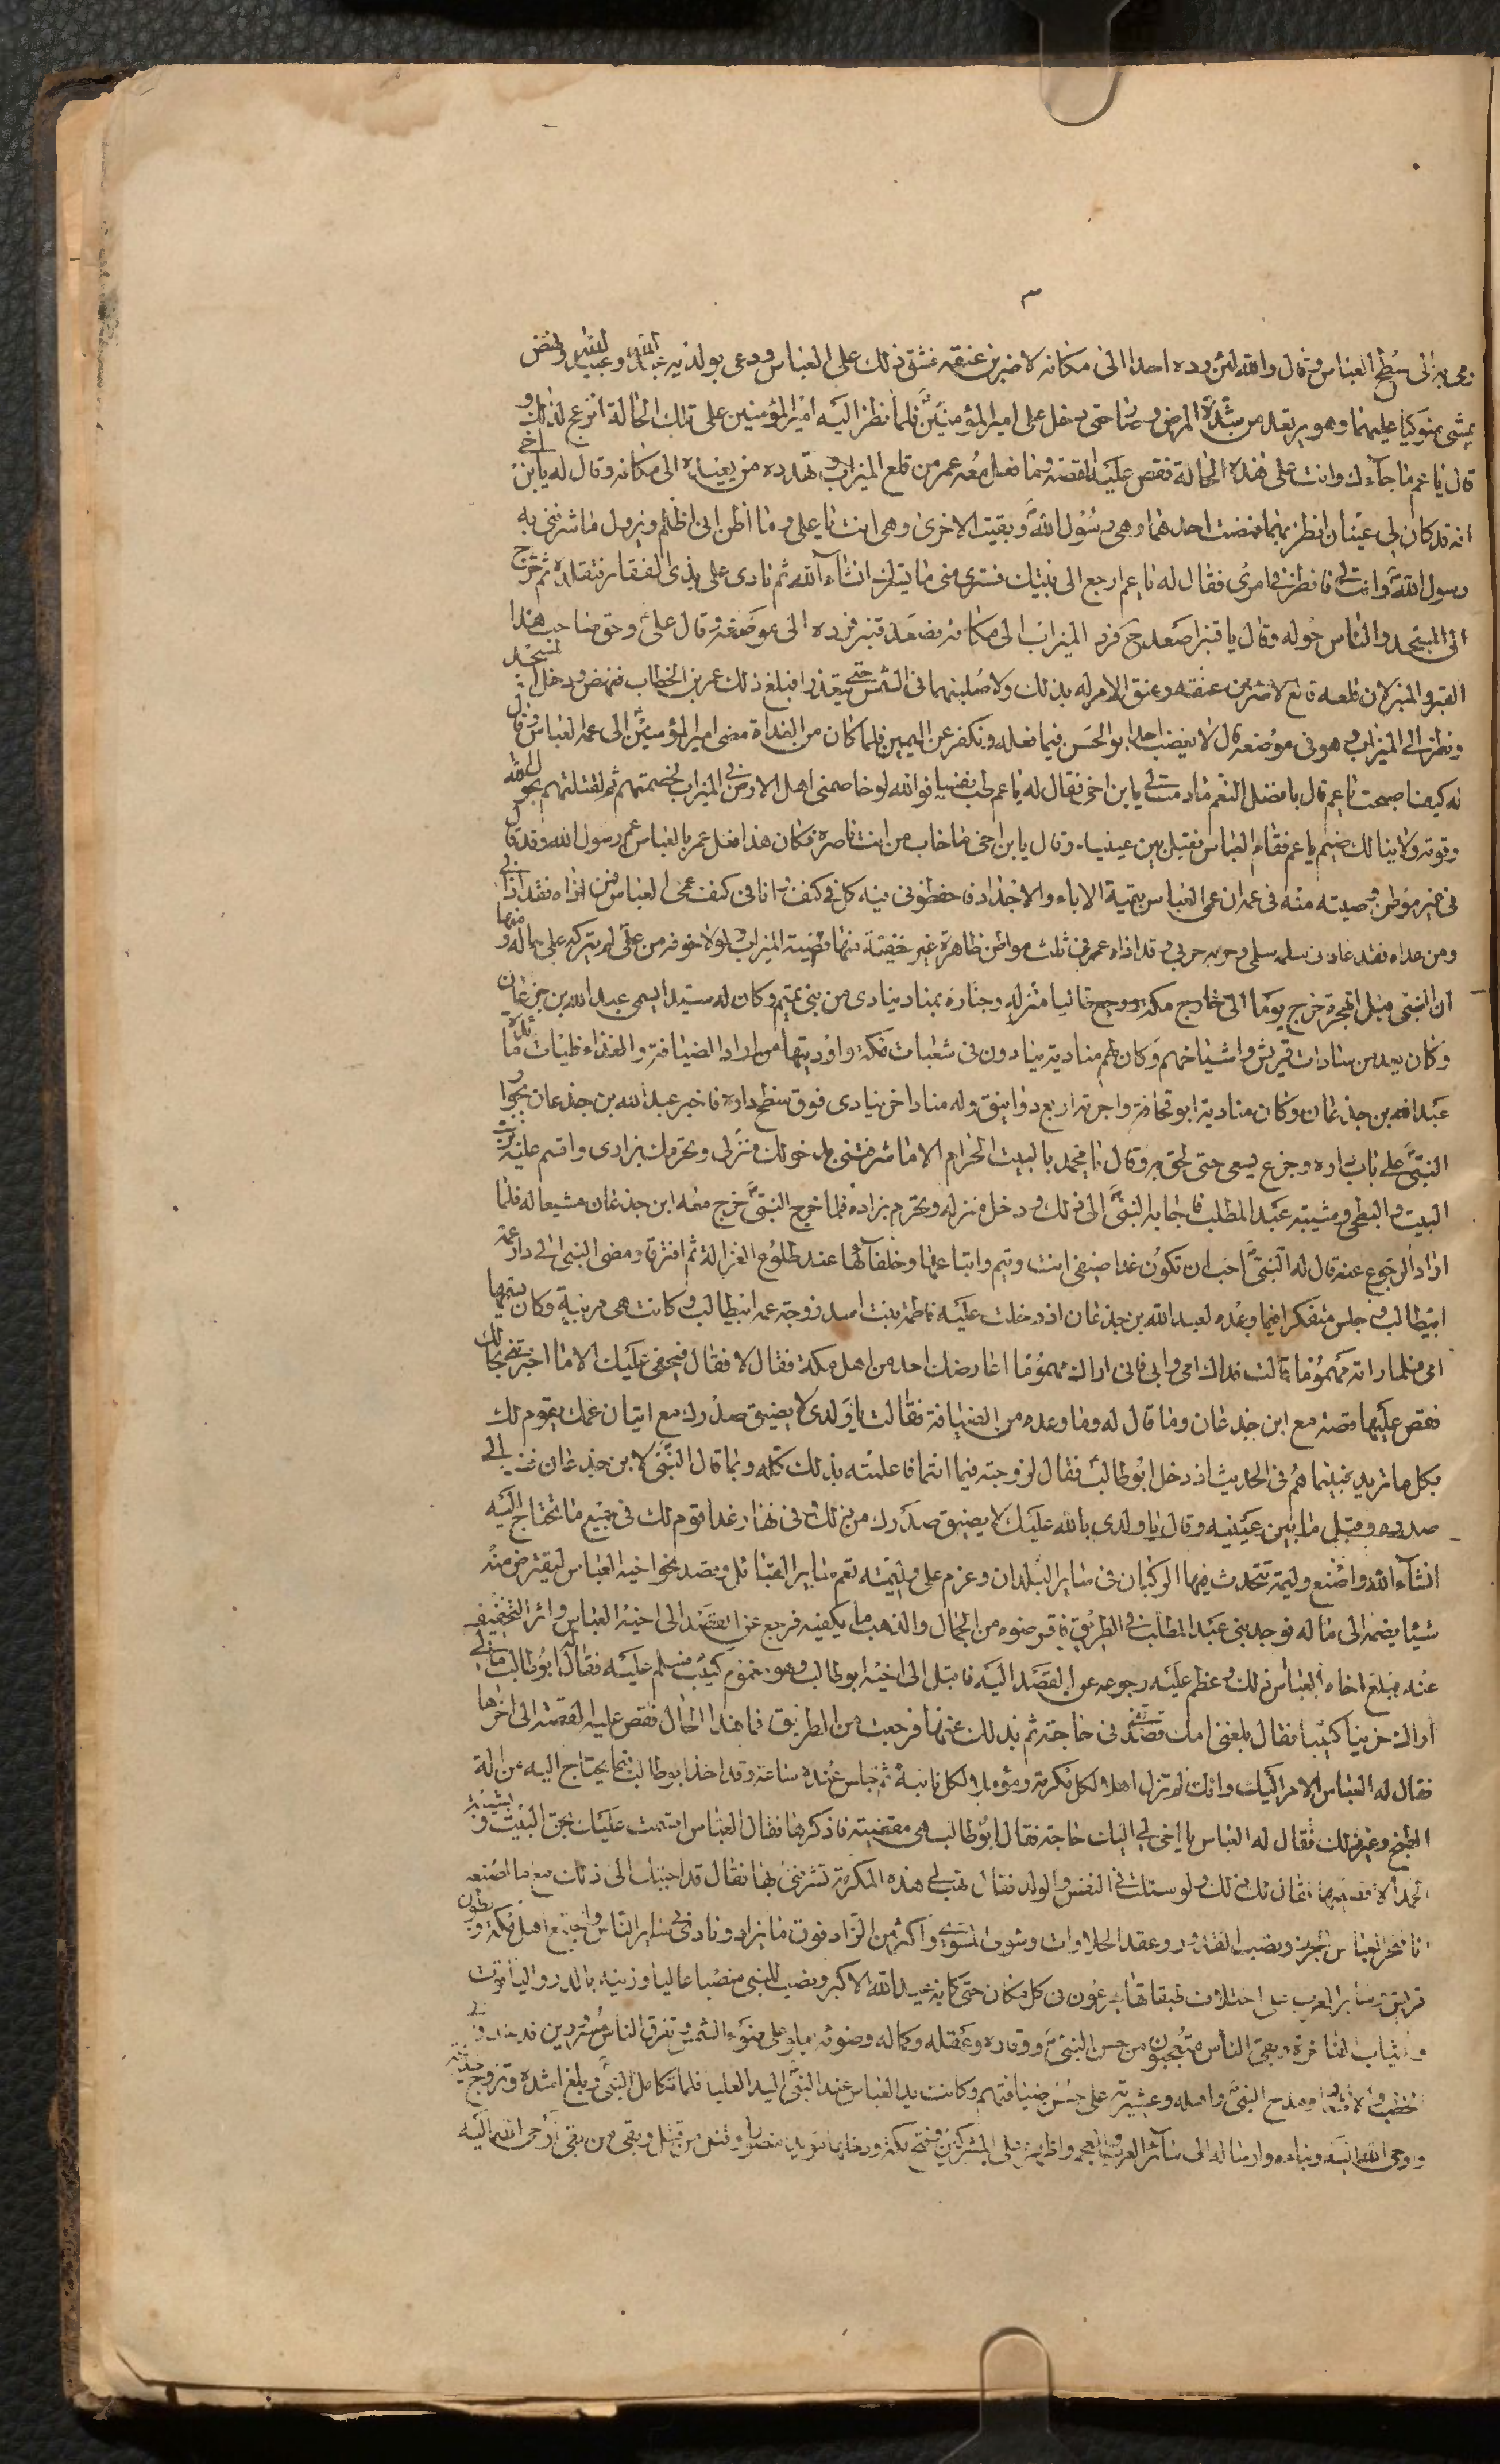 ٣
رمى به الى سطح العباس وقال والله لئن رده احد الى مكانه لاضربن عنقه فشق ذلك على العباس ودعى بولديه عبدالله وعبيدالله ونهض
يمشي متوكيا عليهما وهو يرتعد من شدة المرض وسار حتى دخل على امير المؤمنين فلما نظر اليه امير المؤمنين على تلك الحالة انزعج لذلك و
قال يا عم ما جاء بك وانت على هذه الحالة فقص عليه القصة وما فعل معه عمر من قلع الميزاب وتهدده من يعيده الى مكانه وقال له يا بن اخي
انه قد كان لي عينان انظر بهما فمضت احداهما وهي رسول الله وبقيت الاخرى وهي انت يا علي وما اظن اني اظلم ويزول ما شرفني به
رسول الله وانت لي فانظر في امري فقال له يا عم ارجع الى بيتك فسترى مني ما يسرك انشاء الله ثم نادى علي بذي الفقار فتقلده ثم خرج
الى المسجد والناس حوله وقال يا قنبر اصعد فرد الميزاب الى مكانه فصعد قنبر فرده الى موضعه وقال علي وحق صاحب هذا
القبر والمنبر لان قلعه قالع لاضربن عنقه وعنق الامر له بذلك ولاصلبنهما في الشمس حتى يتقددا فبلغ ذلك عمر بن الخطاب فنهض ودخل المسجد
ونظر الى الميزاب وهو في موضعه قال لا يغضب احد ابو الحسن فيما فعله ونكفر عن اليمين فلما كان من الغداة مضى امير المؤمنين الى عمه العباس وقال
له كيف اصبحت يا عم قال بافضل النعم ما دمت لي يا بن اخي فقال له يا عم طب نفسا فوالله لو خاصمني اهل الارض في الميزاب لخصمتهم ثم لقتلتهم بحول الله
وقوته ولا ينالك ضيم يا عم فقام العباس فقبل بين عينيه وقال يا بن اخي ما خاب من انت ناصره فكان هذا فعل عمر بالعباس عم رسول الله وقد قال
في غير موطن وصيته منه في عمه ان عمي العباس بقية الاباء والاجداد فاحفظوني فيه كل في كنفي وانا في كنف عمي العباس فمن اذاه فقد اذاني
ومن عداه فقد عاداني سلمه سلمي وحربه حربي وقد اذاه عمر في ثلث مواطن ظاهرة غير خفية منها قضية الميزاب ولولا خوفه من علي لم يتركه على حاله ومنها
ان النبي قبل الهجرة خرج يوما الى خارج مكة ورجع طالبا منزله واجتاز بمناد ينادي من بني تميم وكان له سيد اسمه عبد الله بن جذعان
وكان يعد من سادات قريش واشياخهم وكان لهم منادية ينادون في شعبات مكة واوديتها من اراد الضيافة والغذاء فليات مائدة
عبد الله بن جذعان وكان مناديه ابو قحافة واجرته اربع دوانيق وله مناد اخر ينادي فوق سطح داره فاخبر عبد الله بن جذعان بجواز
النبي على باب داره وخرج يسعى حتى لحق به وقال يا محمد بالبيت الحرام الا ما شرفتني بدخولك منزلي وتحرمك بزادي واقسم عليه برب
البيت والبطحى وشيبة عبد المطلب فاجابه النبي الى ذلك ودخل منزله وتحرم بزاده فلما خرج النبي خرج معه ابن جذعان مشيعا له فلما
اراد الرجوع عنه قال له النبي احب ان تكون غدا ضيفي انت وتيم واتباعها وخلفائها عند طلوع الغزالة ثم افترقا ومضى النبي الى دار عمه
ابيطالب وجلس متفكرا فيما وعده لعبد الله بن جذعان اذ دخلت عليه فاطمة بنت اسد زوجة عمه ابيطالب وكانت هي مربيه وكان يسميها
امي فلما راته مهموما قالت فداك امي وابي فاني اراك مهموما اعارضك احد من اهل مكة فقال لا فقال فبحقي عليك الا ما اخبرتني بحالك
فقص عليها قصته مع ابن جذعان وما قال له وما وعده من الضيافة فقالت يا ولدي لا يضيق صدرك مع اتيان عمك يقوم لك
بكل ما تريد فبينما هم في الحديث اذ دخل ابو طالب فقال لزوجته فيما انتما فاعلمته بذلك كله وبما قال النبي لابن جذعان فضمه الى
صدره وقبل ما بين عينيه وقال يا ولدي بالله عليك لا يضيق صدرك من ذلك وفي نهار غد اقوم لك في جميع ما تحتاج اليه
انشاء الله واصنع وليمة تتحدث فيها الركبان في سائر البلدان وعزم على وليمة تعم سائر القبائل وقصد نحو اخيه العباس ليقترض منه
شيئا يضمه الى ماله فوجد بني عبد المطلب في الطريق فاقرضوه من الجمال والذهب ما يكفيه فرجع عن القصد الى اخيه العباس واثر التخفيف
عنه فبلغ اخاه العباس ذلك وعظم عليه رجوعه عن القصد اليه فاقبل الى اخيه ابو طالب وهو مغموم كئيب فسلم عليه فقال له ابو طالب مالي
اراك حزينا كئيبا فقال بلغني انك قصدتني في حاجة ثم بدا لك عنها فرجعت من الطريق فما هذا الحال فقص عليه القصة الى اخرها
فقال له العباس الامر اليك وانك لم تزل اهلا لكل مكرمة ومؤملا لكل نائبة ثم جلس عنده ساعة وقد اخذ ابو طالب فيما يحتاج اليه من الة
الطبخ وغير ذلك فقال له العباس يا اخي لي اليك حاجة فقال ابو طالب هي مقضية فاذكرها فقال العباس اقسمت عليك بحق البيت وبشيبة
الحمد الا قضيتها فقال لك ذلك ولو سئلت في النفس والولد فقال تهب لي هذه المكرمة تشرفني بها فقال قد اجبتك الى ذلك مع ما اصنعه
انا فنحر العباس الجزر ونصب القدور وعقد الحلاوات وشوى المشوي واكثر من الزاد فوق ما يراد ونادى في سائر الناس واجتمع اهل مكة وبطون
قريش وسائر العرب على اختلاف طبقاتها يهرعون من كل مكان حتى كانه عيد الله الاكبر ونصب للنبي منصبا عاليا وزينه بالدر والياقوت
والثياب الفاخرة وبقي الناس متعجبون من حسن النبي ووقاره وعقله وكماله وضوئه يعلو على ضوء الشمس وتفرق الناس مسرورين
الخطب والاشعار ومدح النبي واهله وعشيرته على حسن ضيافتهم وكانت يد العباس عند النبي اليد العليا فلما تكامل النبي وبلغ اشده وتزوج خديجة
واوحى الله اليه ونباه وارساله الى سائر العرب والعجم واظهره على المشركين وفتح مكة ودخلها مؤيدا منصورا وقتل من قتل وبقي من بقي اوحى الله اليه